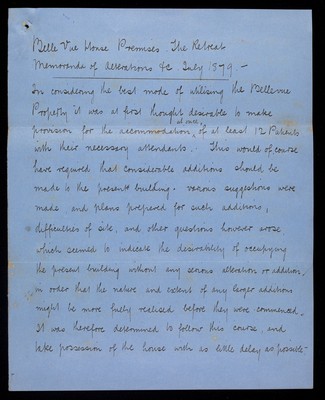 Belle Vue House Premises. The Retreat
Memoranda of Alterations &c July 1879 —
In considering the best mode of utilising the Bellevue
Property it was at first thought desirable to make
at once,
provision for the accommodation, of at least 12 Patients
with their necessary attendants. This would of course
have required that considerable additions should be
made to the present building. various suggestions were
made and plans prepared for such additions,
difficulties of site, and other questions however arose
which seemed to indicate the desirability of occupying
the present building without any serious alteration or addition,
in order that the nature and extent of any larger additions
might be more fully realised before they were commenced.
It was therefore determined to follow this course and
take possession of the house with as little delay as possible —